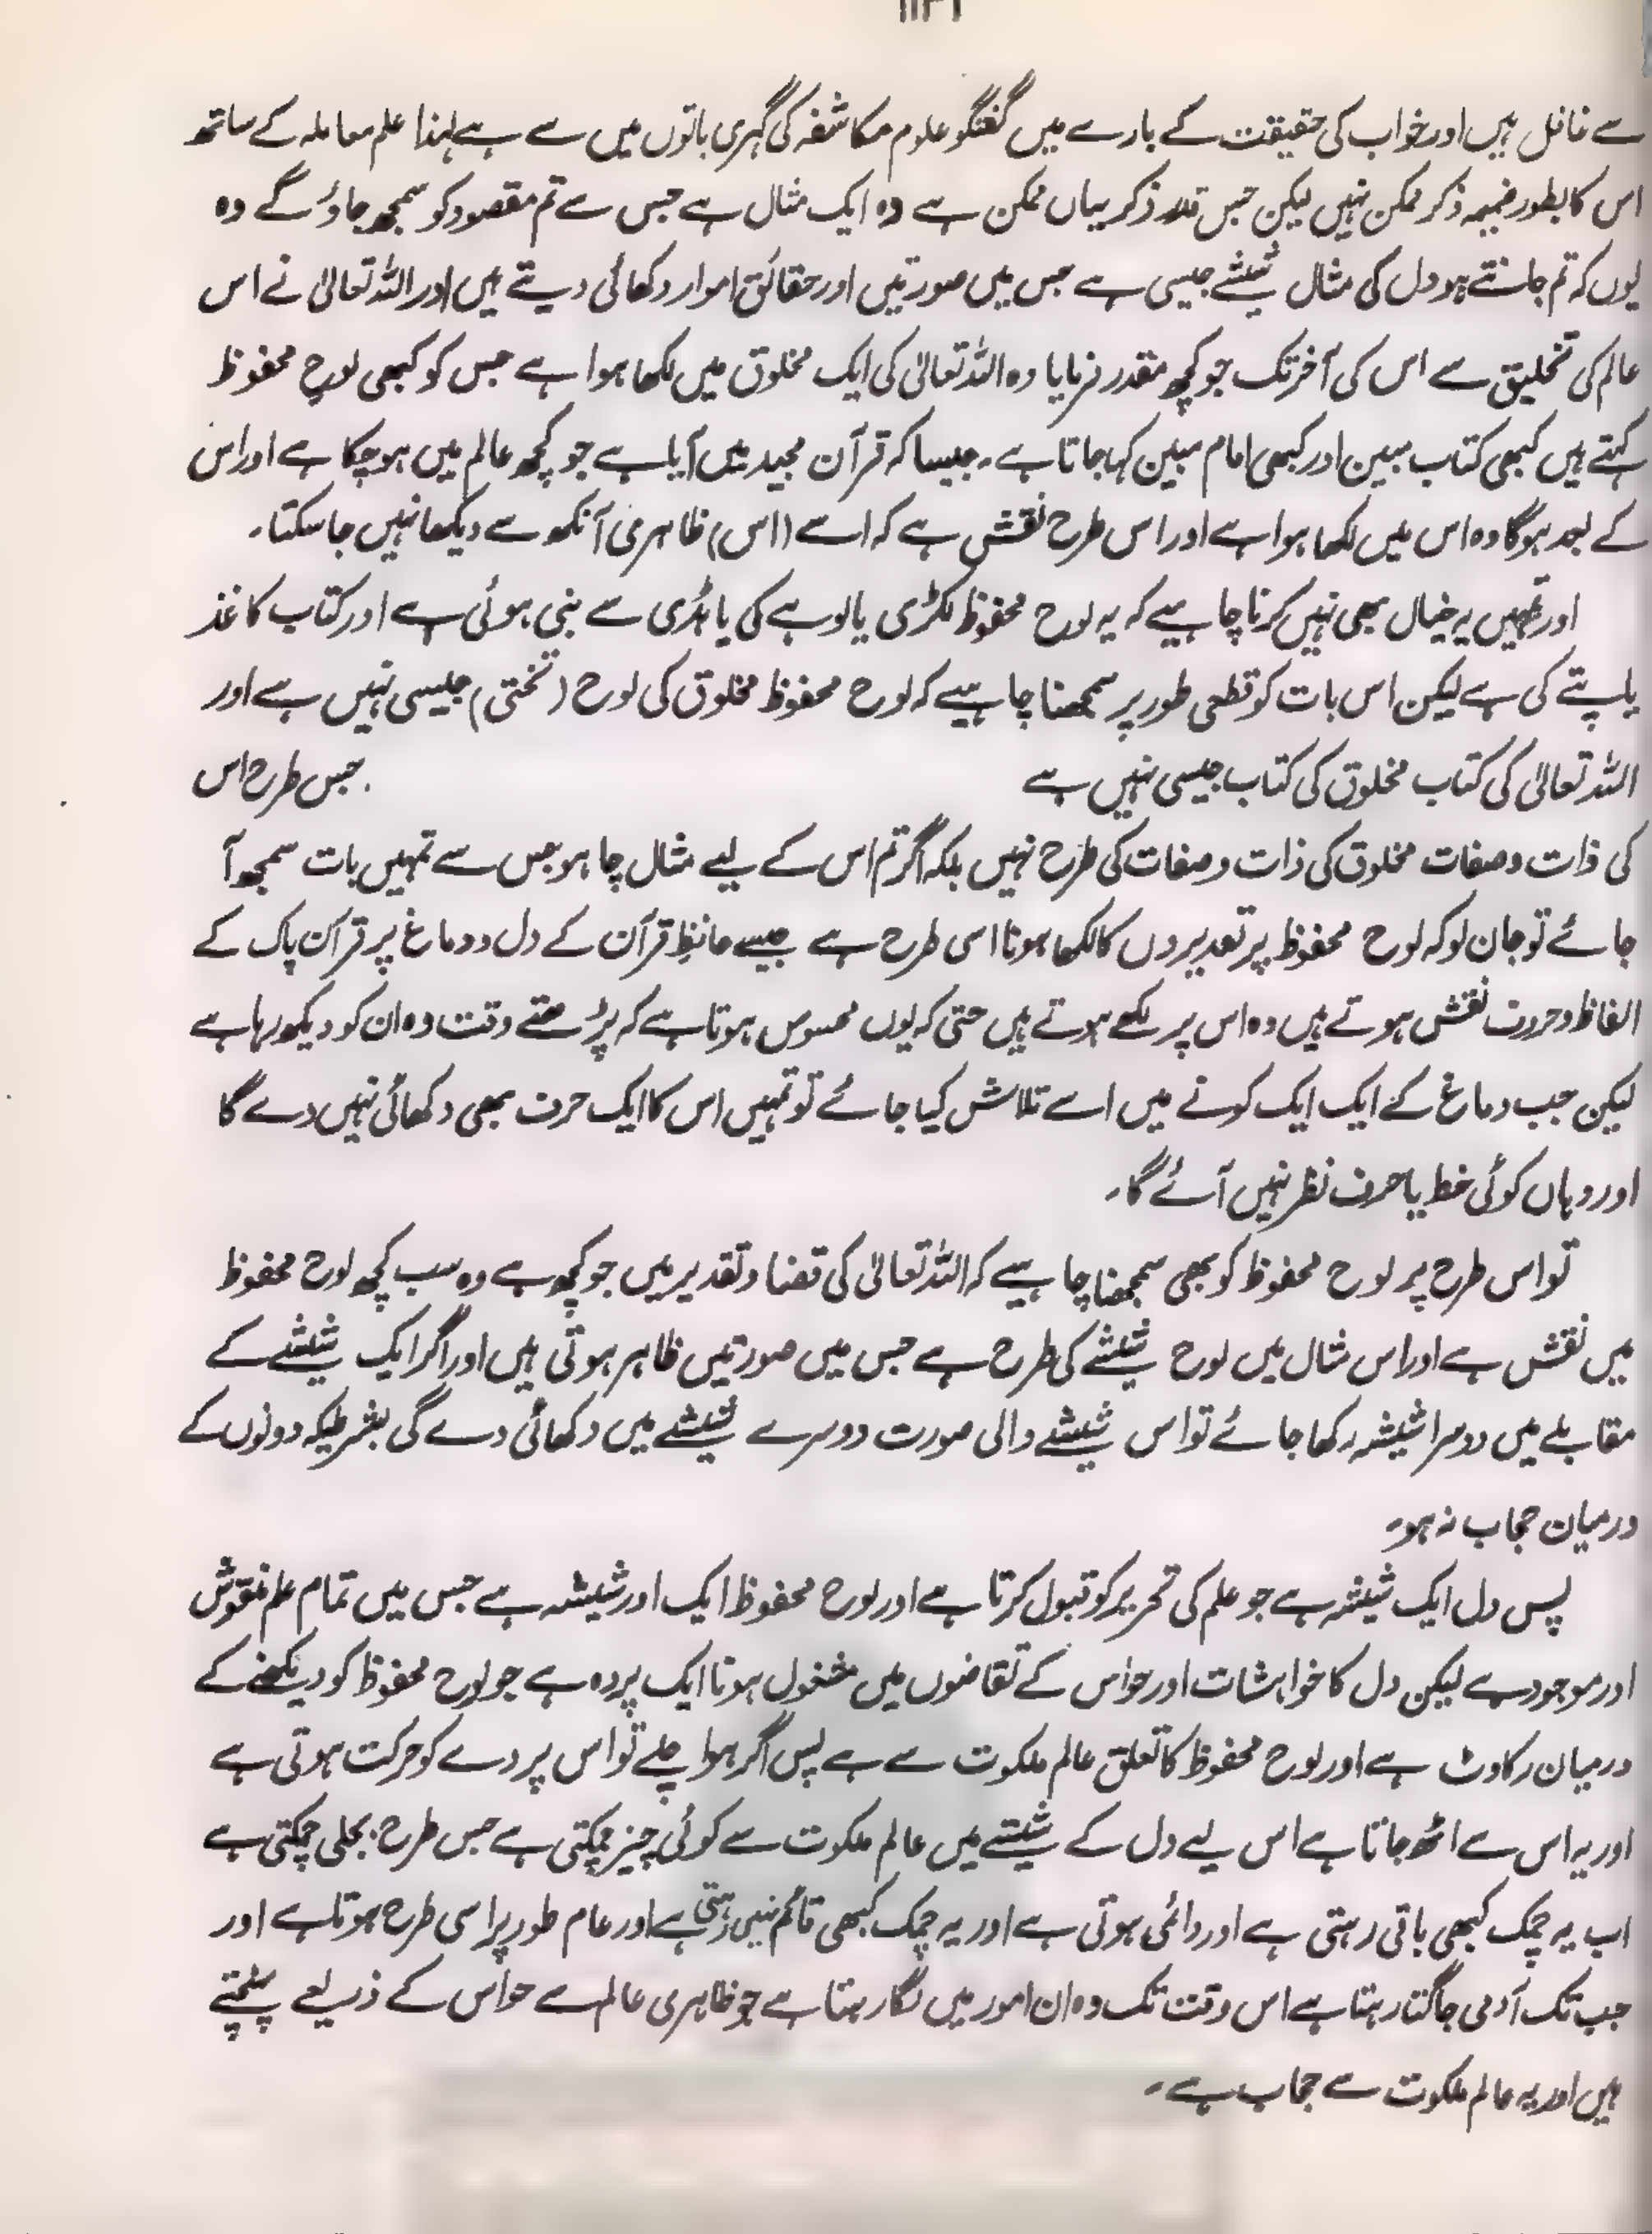 سے غافل ہیں اور خواب کی حقیقت کے بارے میں گفتگو علوم مکاشفہ کی گہری باتوں میں سے ہے لہٰذا علم معاملہ کے ساتھ
اس کا بطور ضمیمہ ذکر ممکن نہیں لیکن جس قدر ذکر یہاں ممکن ہے وہ ایک مثال ہے جس سے تم مقصود کو سمجھ جاؤ گے وہ
یوں کہ تم جانتے ہو دل کی مثال شیشے جیسی ہے جس میں صورتیں اور حقائق امور دکھائی دیتے ہیں اور اللہ تعالیٰ نے اس
عالم کی تخلیق سے اس کی آخر تک جو کچھ مقدر فرمایا وہ اللہ تعالیٰ کی ایک مخلوق میں لکھا ہوا ہے جس کو کبھی لوحِ محفوظ
کہتے ہیں کبھی کتاب مبین اور کبھی امام مبین کہا جاتا ہے۔ جیسا کہ قرآن مجید میں آیا ہے جو کچھ عالم میں ہو چکا ہے اور اس
کے بعد ہوگا وہ اس میں لکھا ہوا ہے اور اس طرح نقش ہے کہ اسے (اس) ظاہری آنکھ سے دیکھا نہیں جا سکتا۔
اور تمہیں یہ خیال بھی نہیں کرنا چاہیے کہ یہ لوح محفوظ لکڑی یا لوہے کی یا ہڈی سے بنی ہوئی ہے اور کتاب کاغذ
یا پتے کی ہے لیکن اس بات کو قطعی طور پر سمجھنا چاہیے کہ لوح محفوظ مخلوق کی لوح (تختی) جیسی نہیں ہے اور
اللہ تعالیٰ کی کتاب مخلوق کی کتاب جیسی نہیں ہے . جس طرح اس
کی ذات و صفات مخلوق کی ذات و صفات کی طرح نہیں بلکہ اگر تم اس کے لیے مثال چاہو جس سے تمہیں بات سمجھ آ
جائے تو جان لو کہ لوح محفوظ پر تقدیروں کا لکھا ہونا اسی طرح ہے جیسے حافظِ قرآن کے دل و دماغ پر قرآن پاک کے
الفاظ و حروف نقش ہوتے ہیں وہ اس پر لکھے ہوتے ہیں حتی کہ یوں محسوس ہوتا ہے کہ پڑھتے وقت وہ ان کو دیکھ رہا ہے
لیکن جب دماغ کے ایک ایک کونے میں اسے تلاش کیا جائے تو تمہیں اس کا ایک حرف بھی دکھائی نہیں دے گا
اور وہاں کوئی خط یا حرف نظر نہیں آئے گا۔
تو اس طرح پر لوح محفوظ کو بھی سمجھنا چاہیے کہ اللہ تعالیٰ کی قضا و تقدیر میں جو کچھ ہے وہ سب کچھ لوح محفوظ
میں نقش ہے اور اس مثال میں لوح شیشے کی طرح ہے جس میں صورتیں ظاہر ہوتی ہیں اور اگر ایک شیشے کے
مقابلے میں دوسرا شیشہ رکھا جائے تو اس شیشے والی صورت دوسرے شیشے میں دکھائی دے گی بشرطیکہ دونوں کے
درمیان حجاب نہ ہو۔
پس دل ایک شیشہ ہے جو علم کی تحریر کو قبول کرتا ہے اور لوح محفوظ ایک اور شیشہ ہے جس میں تمام علم نقوش
اور موجود ہے لیکن دل کا خواہشات اور حواس کے تقاضوں میں مشغول ہونا ایک پردہ ہے جو لوح محفوظ کو دیکھنے کے
درمیان رکاوٹ ہے اور لوح محفوظ کا تعلق عالم ملکوت سے ہے پس اگر ہوا چلے تو اس پردے کو حرکت ہوتی ہے
اور یہ اس سے اٹھ جاتا ہے اس لیے دل کے شیشے میں عالم ملکوت سے کوئی چیز چمکتی ہے جس طرح بجلی چمکتی ہے
اب یہ چمک کبھی باقی رہتی ہے اور دائمی ہوتی ہے اور یہ چمک کبھی قائم نہیں رہتی ہے اور عام طور پر اسی طرح ہوتا ہے اور
جب تک آدمی جاگتا رہتا ہے اس وقت تک وہ ان امور میں لگا رہتا ہے جو ظاہری عالم سے حواس کے ذریعے پہنچتے
ہیں اور یہ عالم ملکوت سے حجاب ہے۔